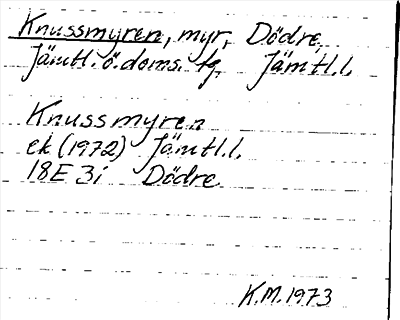 Knussmyren, myr, Dödre
Jämtl. ö. doms. tg Jämtl.l.
Knussmyren
ek (1972) Jämtl.l.
18E 3i Dödre
K.M. 1973